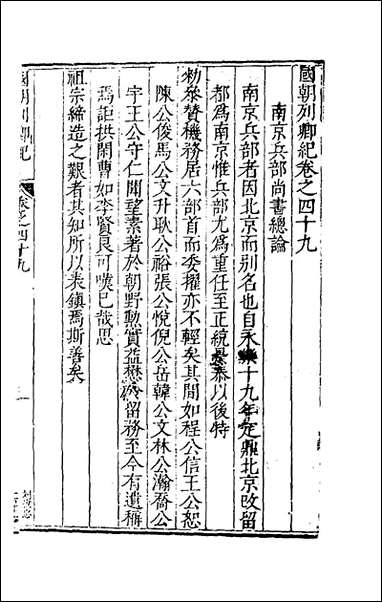 國朝列卿紀卷之四十九
南京兵部尚書總論
南京兵部者因北京而别名也自永樂十九年定鼎北京改留
都爲南京惟兵部尤爲重任至正統景泰以後特
勑叅賛機務居六部首而委擢亦不輕矣其間如程公信王公恕
陳公俊馬公文升耿公裕張公悅倪公岳韓公文林公瀚喬公
宇王公守仁聞望素著於朝野勲實益懋於留務至今有遺稱
焉詎拱閑曹如李賢良可嘆已哉思
祖宗締造之艱者其知所以表鎮焉斯善矣
國朝列卿紀
卷之四十九
一